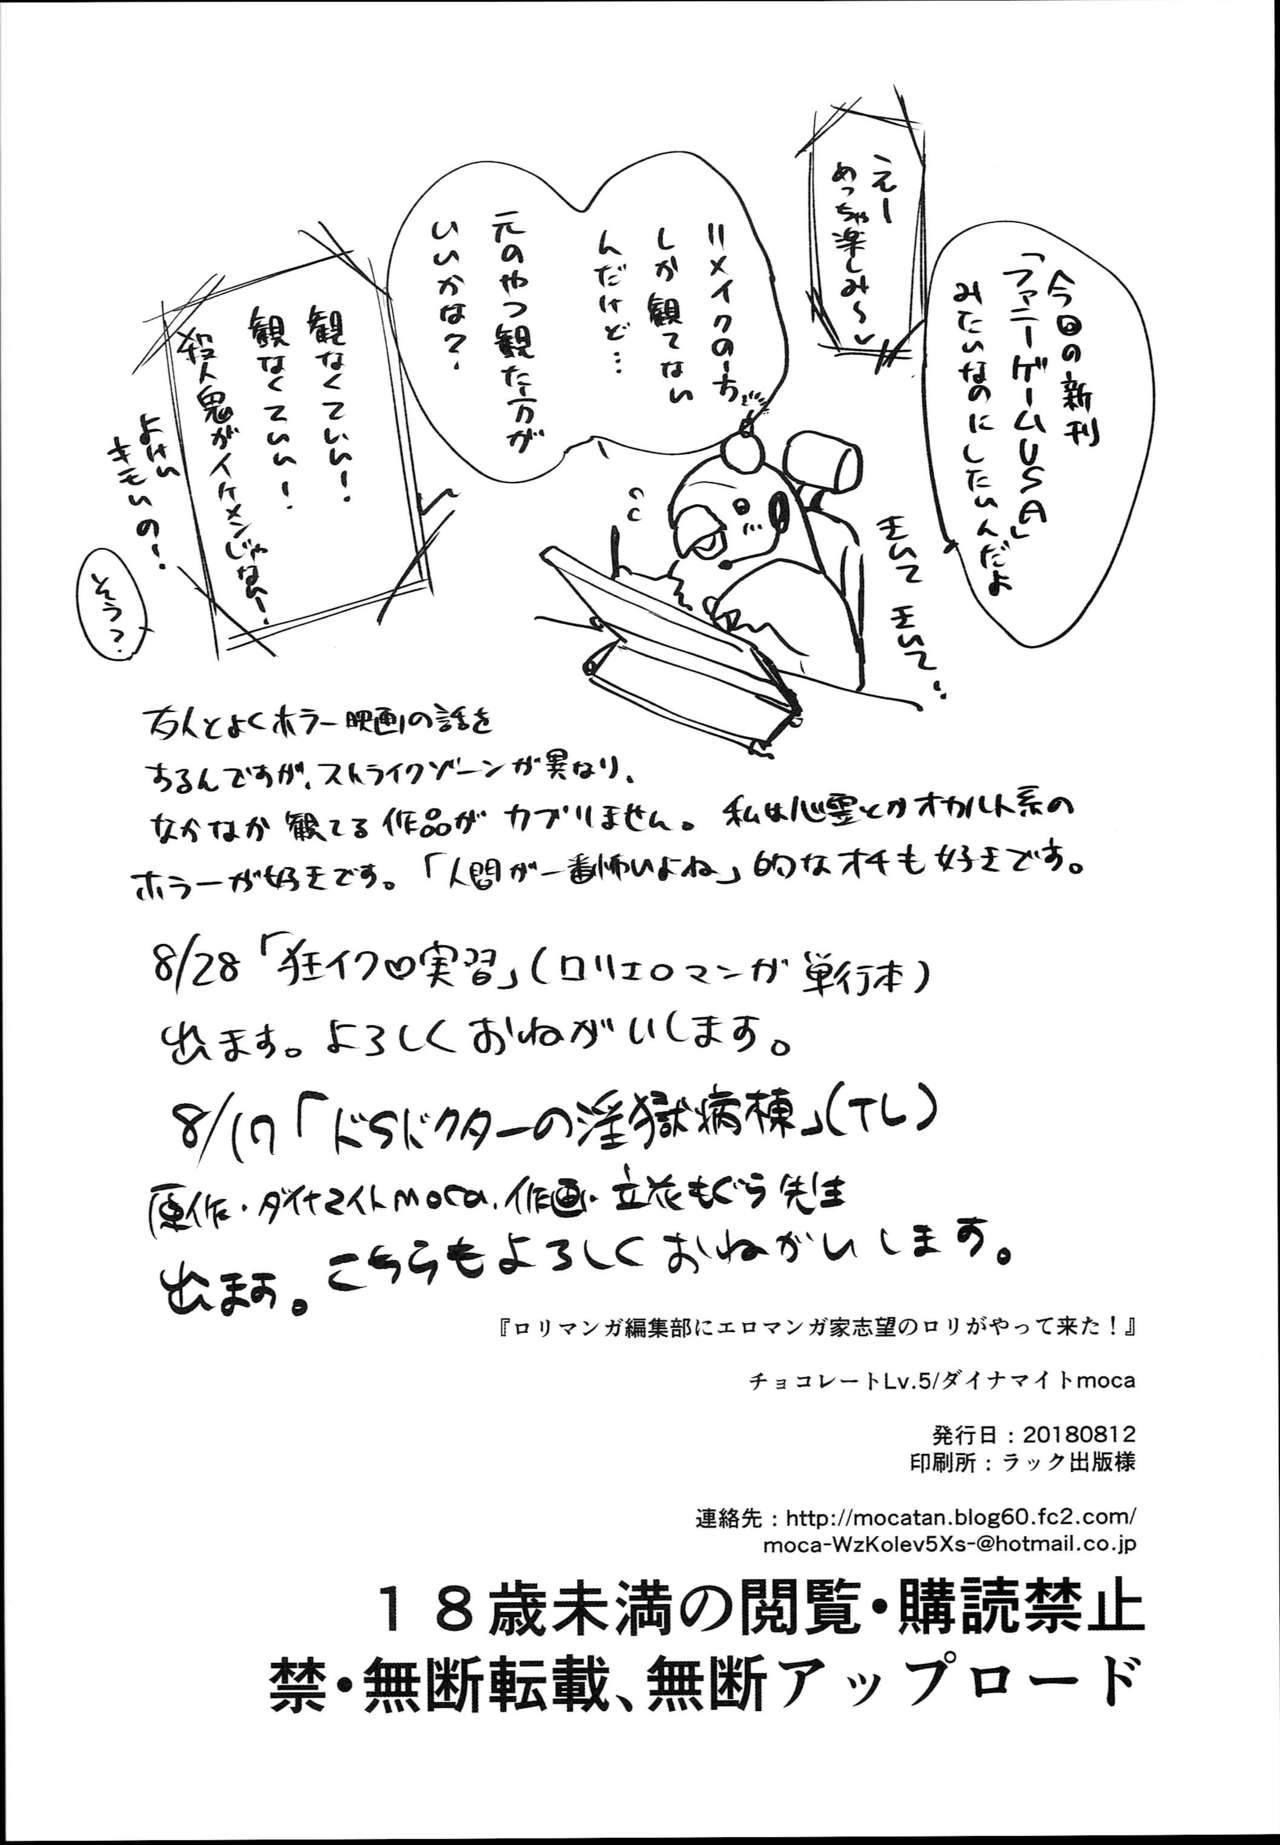 今回の新刊
「ファニーゲームUSA」
みたいなのにしたいんだよ
えー
めっちゃ楽しみ〜♡
リメイクの方
しか観てない
んだけど…
元のやつ観た方が
いいかな？
観なくていい！
観なくていい！
殺人鬼がイケメンじゃない！
よけい
キモいの！
そう？
友人とよくホラー映画の話を
するんですが、ストライクゾーンが異なり、
なかなか観てる作品がカブりません。私は心霊とかオカルト系の
ホラーが好きです。「人間が一番怖いよね」的なオチも好きです。
8/28「狂イク♡実習」（ロリエロマンガ単行本）
出ます。よろしくおねがいします。
8/17「ドSドクターの淫獄病棟」（TL）
原作・ダイナマイトmoca、作画・立花もぐら先生
出ます。こちらもよろしくおねがいします。
『ロリマンガ編集部にエロマンガ家志望のロリがやって来た！』
チョコレートLv.5/ダイナマイトmoca
発行日：20180812
印刷所：ラック出版様
連絡先：http://mocatan.blog60.fc2.com/
moca-WzKolev5Xs-@hotmail.co.jp
１８歳未満の閲覧・購読禁止
禁・無断転載、無断アップロード